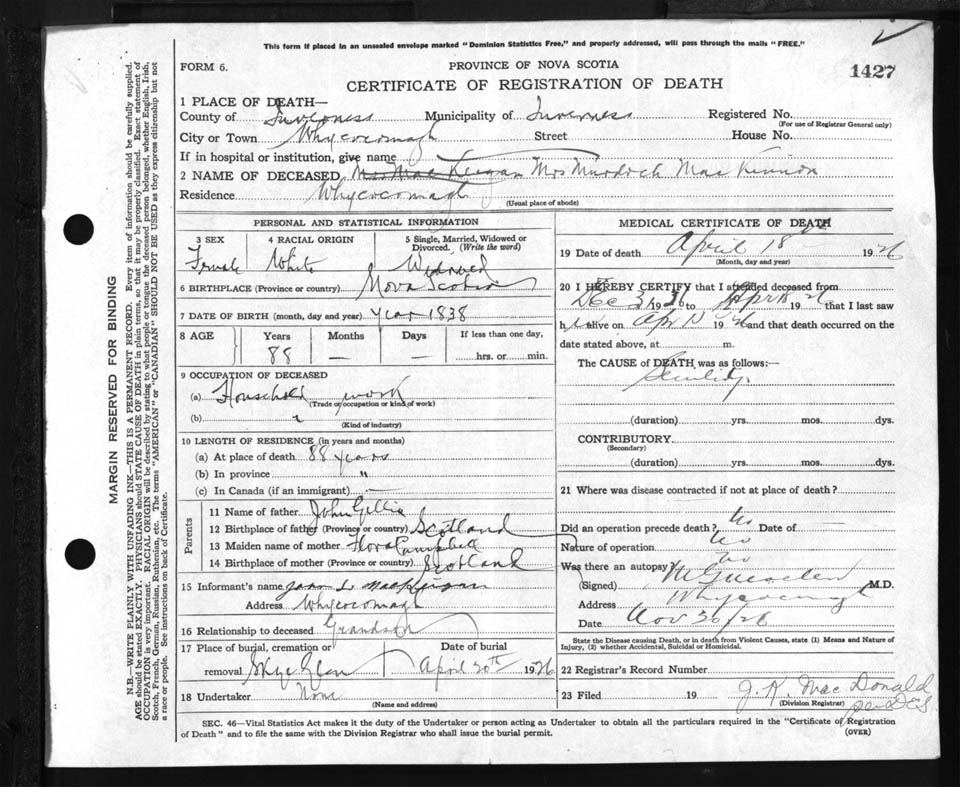 This form if placed in an unsealed envelope marked "Dominion Statistics Free," and properly addressed, will pass through the mails "FREE."
FORM 6.
PROVINCE OF NOVA SCOTIA
1427
CERTIFICATE OF REGISTRATION OF DEATH
1 PLACE OF DEATH—
County of Inverness Municipality of Inverness Registered No.
(For use of Registrar General only)
City or Town Whycocomagh Street House No.
If in hospital or institution, give name
2 NAME OF DECEASED Mrs Murdoch MacKinnon
Residence Whycocomagh
(Usual place of abode)
PERSONAL AND STATISTICAL INFORMATION
3 SEX 4 RACIAL ORIGIN 5 Single, Married, Widowed or Divorced. (Write the word)
Female White Widowed
6 BIRTHPLACE (Province or country) Nova Scotia
7 DATE OF BIRTH (month, day and year) Year 1838
8 AGE Years Months Days If less than one day,
88 — — hrs. or min.
9 OCCUPATION OF DECEASED
(a) Household work
(Trade or occupation or kind of work)
(b)
(Kind of industry)
10 LENGTH OF RESIDENCE (in years and months)
(a) At place of death 88 years
(b) In province "
(c) In Canada (if an immigrant) —
Parents
11 Name of father John Gillis
12 Birthplace of father (Province or country) Scotland
13 Maiden name of mother Flora Campbell
14 Birthplace of mother (Province or country) Scotland
15 Informant's name John L.
Address Whycocomagh
16 Relationship to deceased Grandson
17 Place of burial, cremation or Date of burial
removal Skye Glen April 20th 1926
18 Undertaker None
(Name and address)
MEDICAL CERTIFICATE OF DEATH
19 Date of death April 18 1926
(Month, day and year)
20 I HEREBY CERTIFY that I attended deceased from
Dec 3 1926 to Apr 18 26 19 that I last saw
h alive on Apr 1926 and that death occurred on the
date stated above, at m.
The CAUSE of DEATH was as follows:—
Senility
(duration) yrs. mos. dys.
CONTRIBUTORY
(Secondary)
(duration) yrs. mos. dys.
21 Where was disease contracted if not at place of death?
Did an operation precede death? No Date of —
Nature of operation No
Was there an autopsy? No
(Signed) M.D.
Address Whycocomagh
Date Nov 30/26
State the Disease causing Death, or in death from Violent Causes, state (1) Means and Nature of Injury, (2) whether Accidental, Suicidal or Homicidal.
22 Registrar's Record Number
23 Filed 19 J. K. MacDonald
(Division Registrar)
SEC. 46—Vital Statistics Act makes it the duty of the Undertaker or person acting as Undertaker to obtain all the particulars required in the "Certificate of Registration
of Death" and to file the same with the Division Registrar who shall issue the burial permit.
(OVER)
MARGIN RESERVED FOR BINDING
N.B.—WRITE PLAINLY WITH UNFADING INK—THIS IS A PERMANENT RECORD. Every item of information should be carefully supplied.
AGE should be stated EXACTLY. PHYSICIANS should STATE CAUSE OF DEATH in plain terms, so that it may be properly classified. Exact statement of
OCCUPATION is very important. RACIAL ORIGIN will be described by stating to what people or tongue the deceased person belonged, whether English, Irish,
Scotch, French, German, Russian, Ruthenian, etc. The terms "AMERICAN" or "CANADIAN" SHOULD NOT BE USED as they express citizenship but not
a race or people. See instructions on back of Certificate.